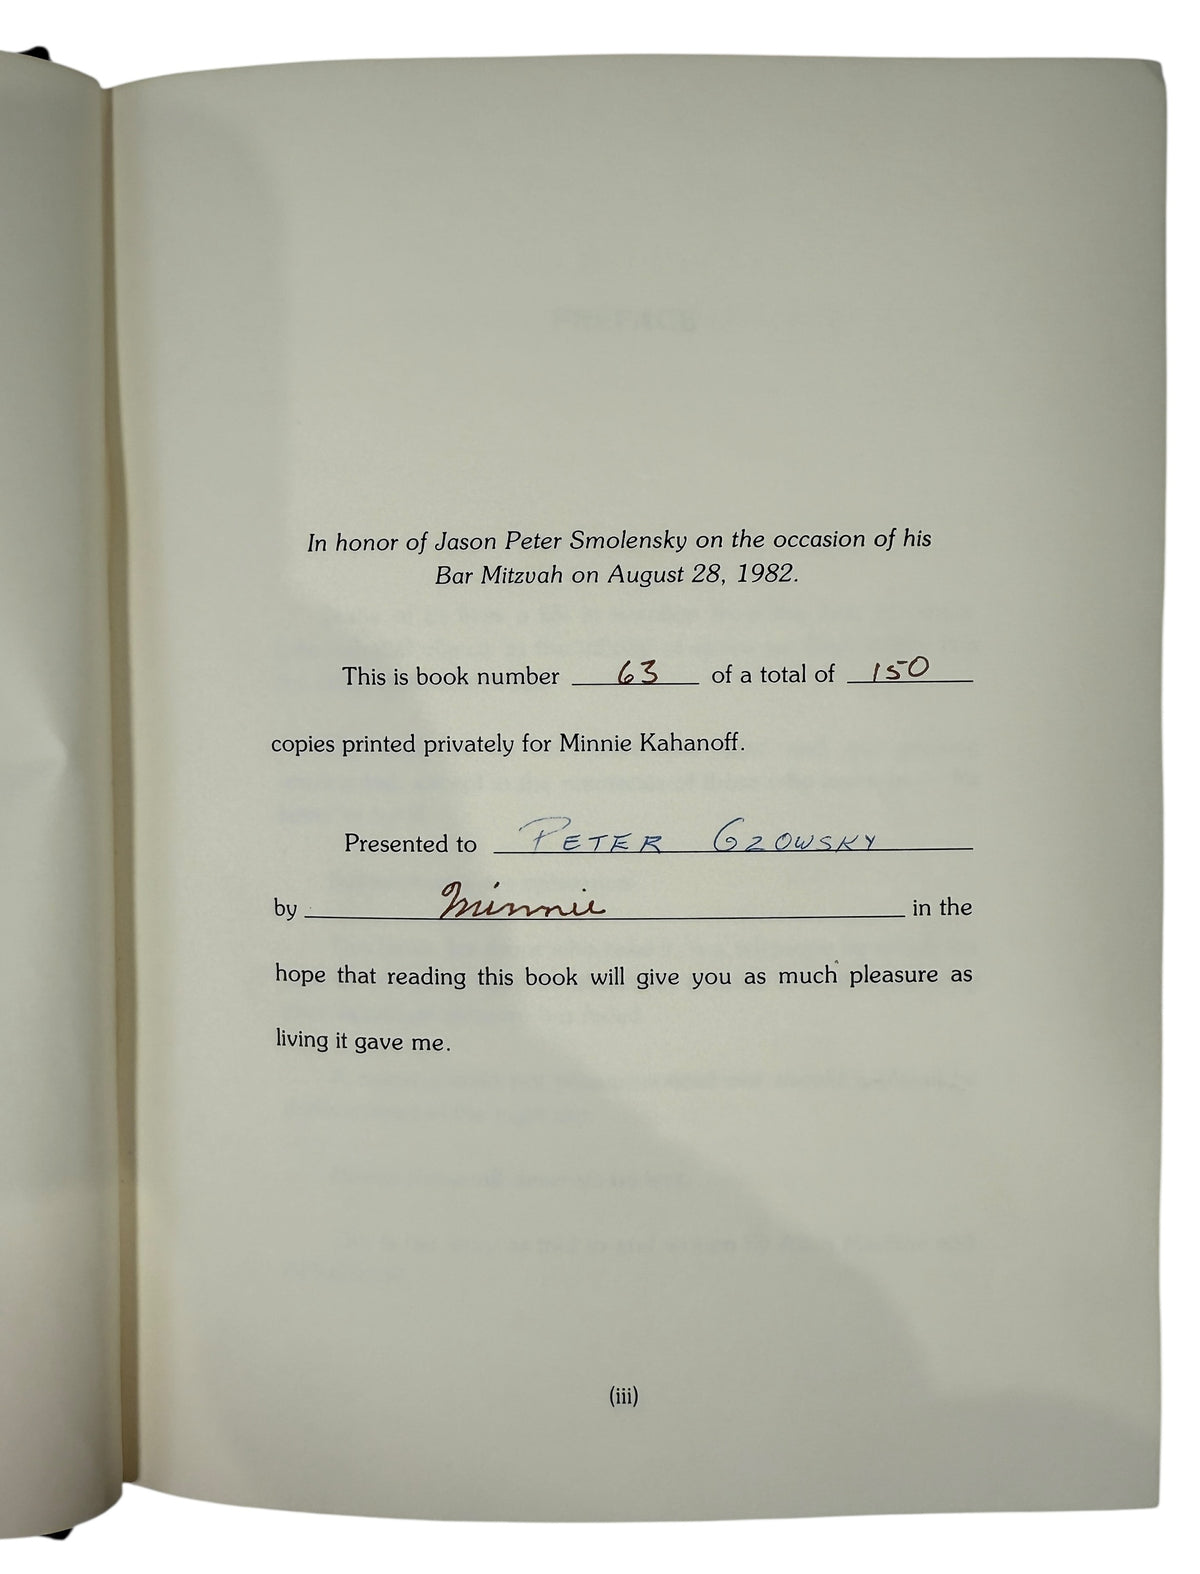 In honor of Jason Peter Smolensky on the occasion of his
Bar Mitzvah on August 28, 1982.
This is book number 63 of a total of 150
copies printed privately for Minnie Kahanoff.
Presented to PETER GZOWSKY
by Minnie in the
hope that reading this book will give you as much pleasure as
living it gave me.
(iii)
PREFACE